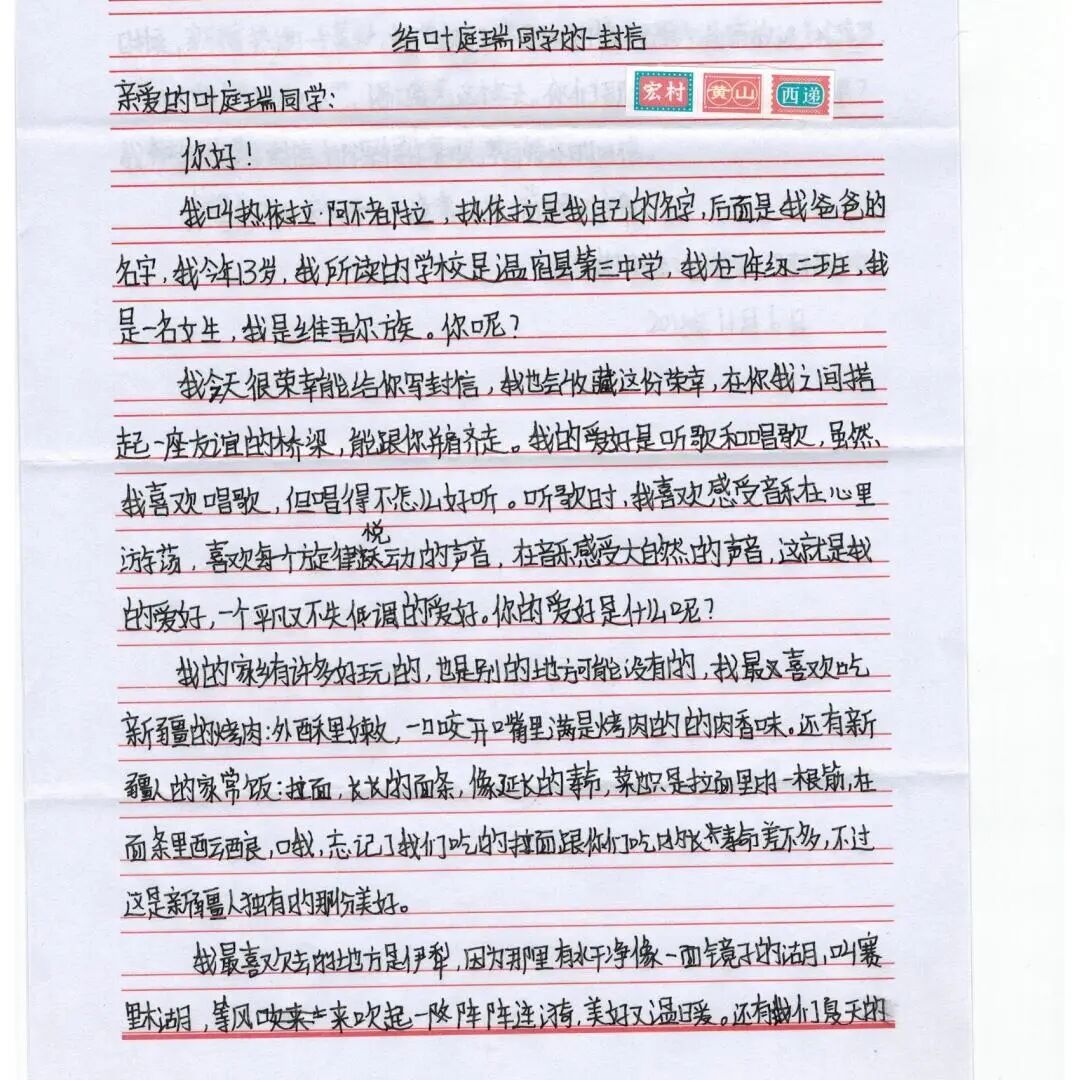 给叶庭瑞同学的一封信
宏村 黄山 西递
亲爱的叶庭瑞同学:
你好!
我叫热依拉·阿不者,热依拉是我自己的名字,后面是我爸爸的
名字,我今年13岁,我所读的学校是温宿县第三中学 我在7年级二班生,我
是一名女生,我是维吾尔族。你呢?
我今天很荣幸能给你写封信,我也会收藏这份荣幸,在你我之间搭
起一座友谊的桥梁,能跟你并肩齐走。我的爱好是听歌和唱歌,虽然
我喜欢唱歌,但唱得不怎么好听。听歌时,我喜欢感受音乐在心里
悦
游荡,喜欢每个旋律动的声音,在音乐感受大自然的声音,这就是我
的爱好,一个平凡又不失低调的爱好。你的爱好是什么呢?
我的家乡有许多好玩的,也是别的地方可能没有的,我最喜欢吃
新疆的烤肉:外酥里嫩,一口咬开嘴里满是烤肉的的肉香味。还有新
疆人的家常饭:拉面,长长的面条,像延长的寿命,菜是拉面里的一根筋,在
面条里酝酿,哦,忘记了我们吃的拉面跟你们吃的长寿命差不多,不过
这是新疆人独有的那份美好。
我最喜欢去的地方是伊犁,因为那里有水干净像一面镜子的湖,叫赛
里木湖,等风来吹起一阵阵连漪,美好又温暖。还有我们夏天的